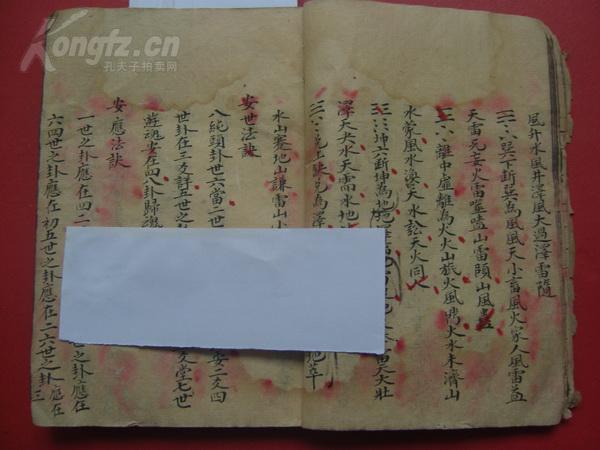 Kongfz.cn
孔夫子拍卖网
風井水風井澤風大過澤雷隨
三六巽下断巽為風風天小畜風火家人風雷益
天雷无妄火雷噬嗑山雷頤山風蠱
三六離中虛離為火火山旅火風鼎火水未濟山
水蒙風水渙天水訟天火同人
三六坤六断坤為地
雷天大壯
澤天夬水天需水地
三六兌上缺兌為澤
地萃
水山蹇地山謙雷山小
安世法訣
八純頭卦世六當一世
安二爻四
世卦在三爻許五世之
爻堂七世
遊魂安在四八卦歸魂
安應法訣
一世之卦應在四二
之卦應在
六四世之卦應在初五世之卦應在二六世之卦應在三